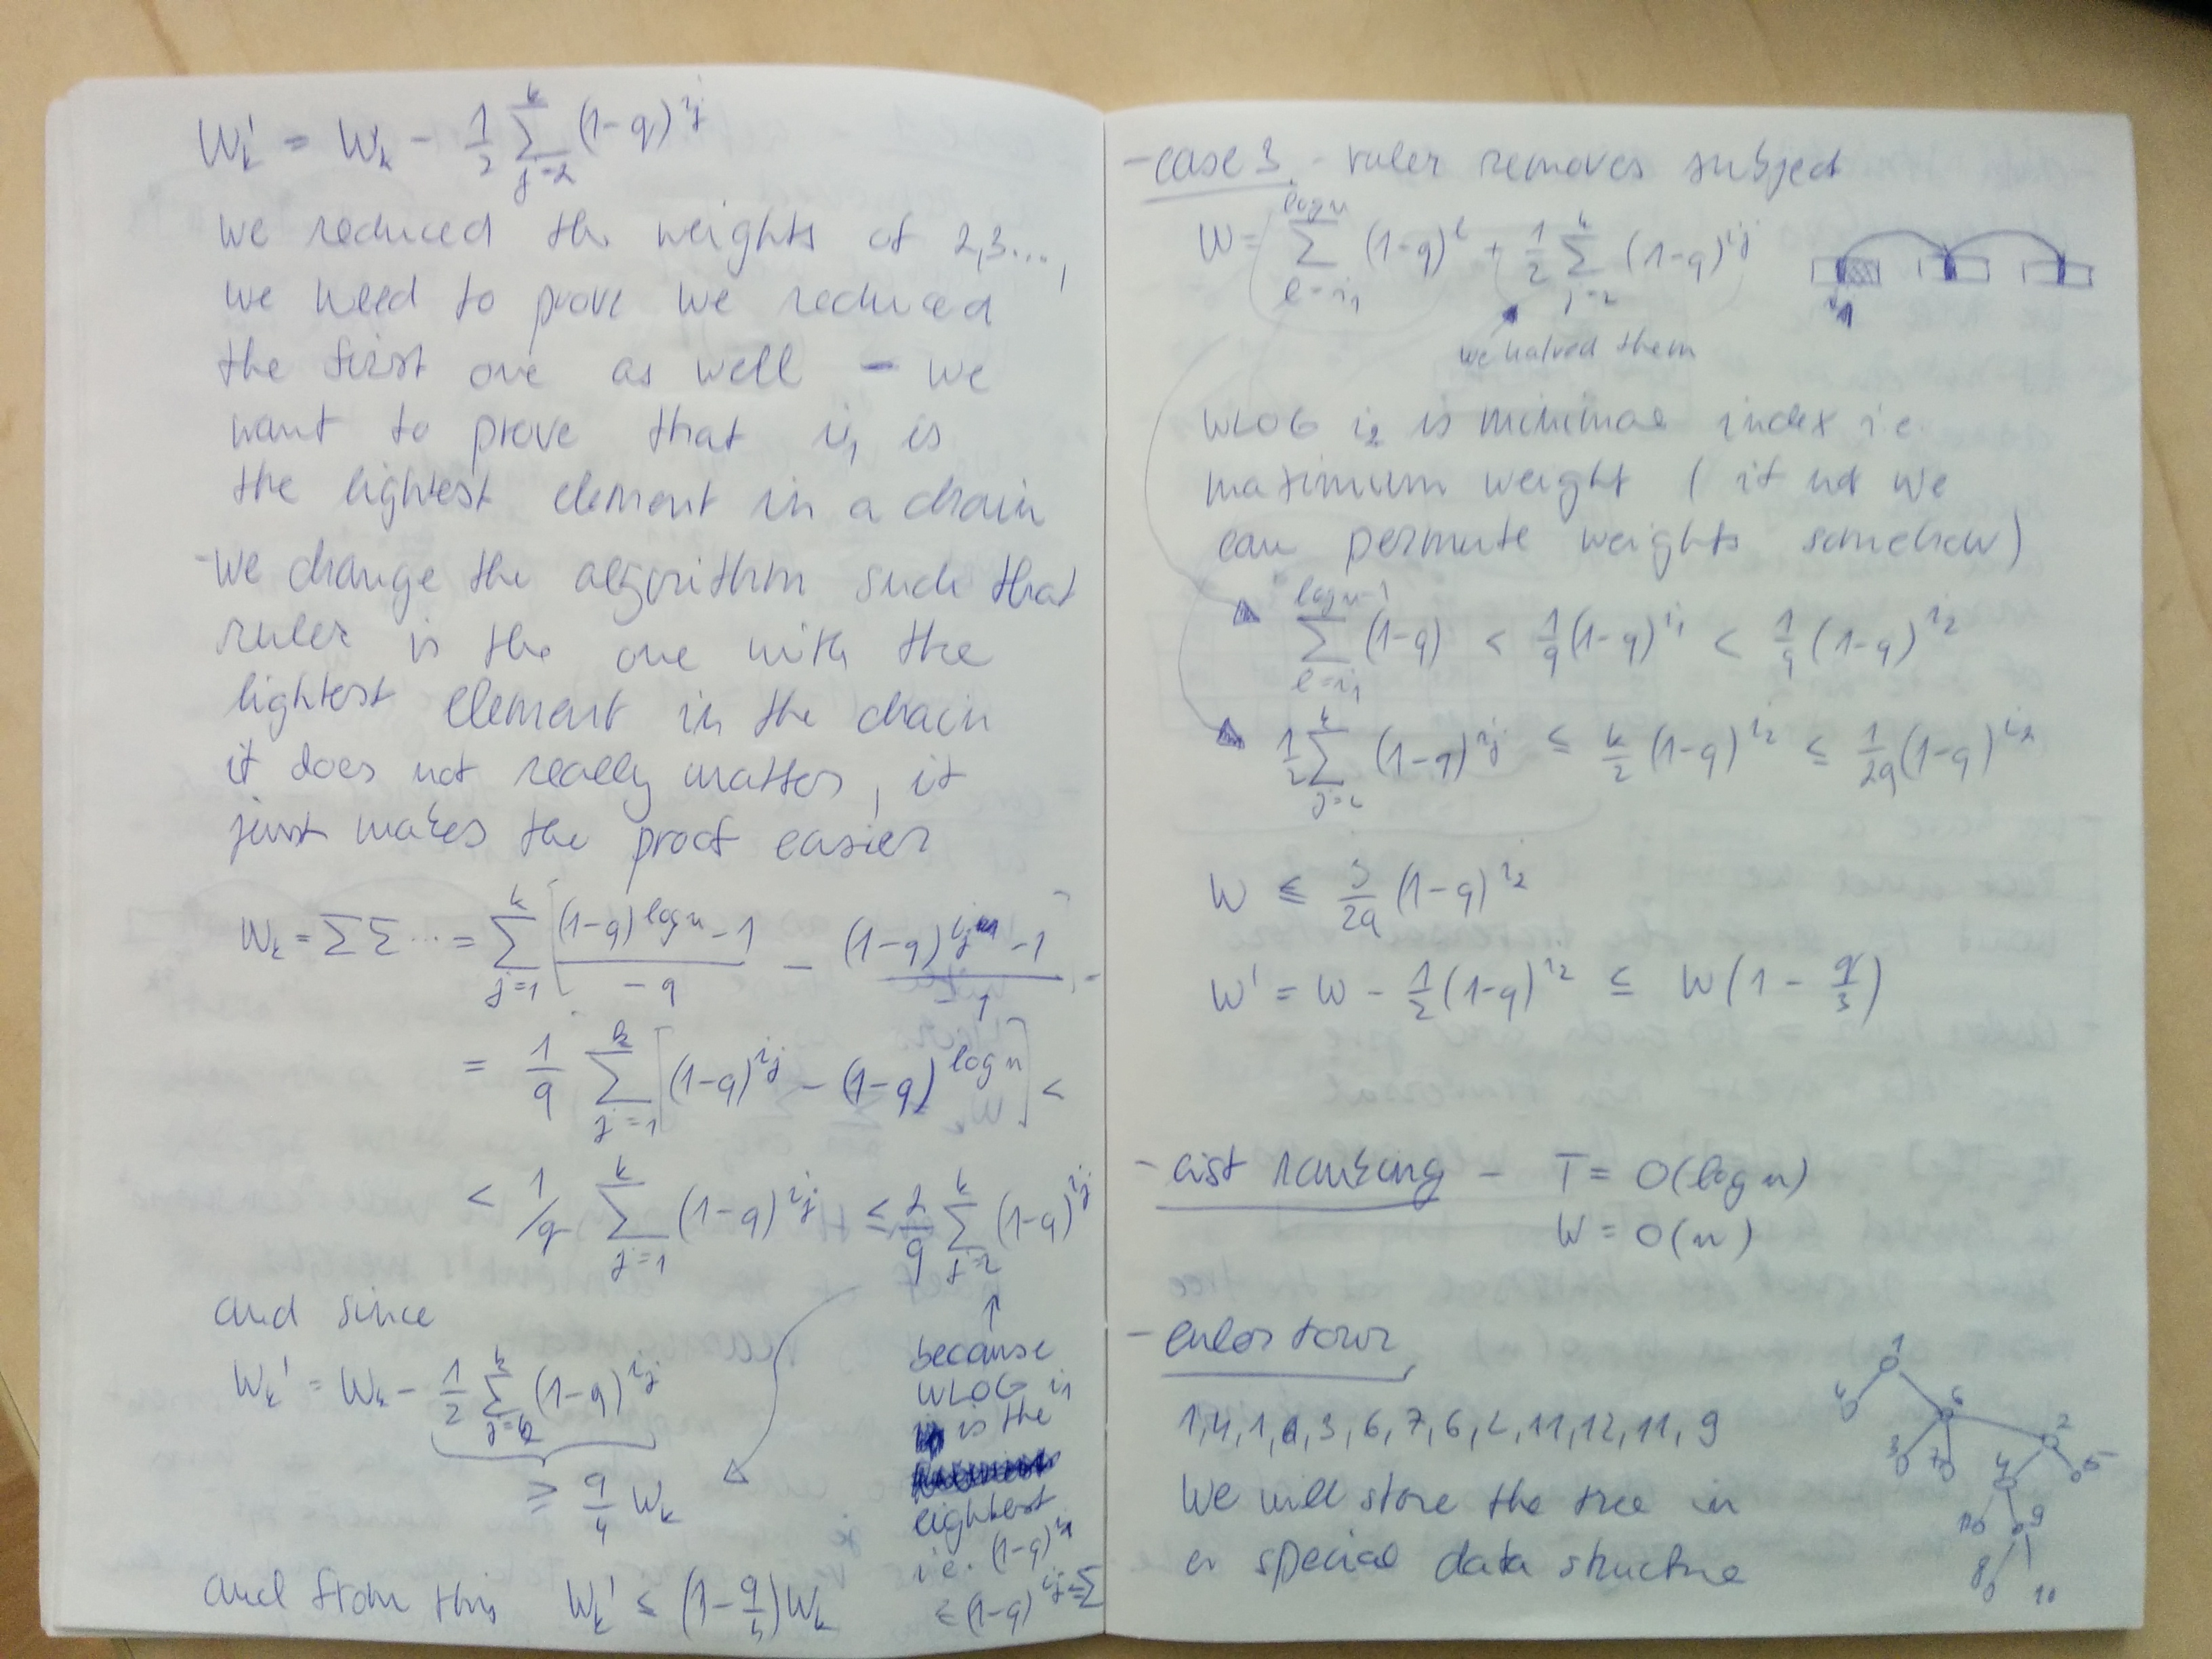 W'_k = W_k - 1/2 ∑_{j=2}^{k} (1-q)^{i_j}
we reduced the weights of 2,3...,
we need to prove we reduced
the first one as well - we
want to prove that i_1 is
the lightest element in a chain
- we change the algorithm such that
ruler is the one with the
lightest element in the chain
it does not really matter, it
just makes the proof easier
W_k = ∑ ∑ ... = ∑_{j=1}^{k} [ ((1-q)^{log n} - 1)/(-q) - ((1-q)^{i_j} - 1)/(-q) ]
= 1/q ∑_{j=1}^{k} [(1-q)^{i_j} - (1-q)^{log n}] <
< 1/q ∑_{j=1}^{k} (1-q)^{i_j} ≤ 2/q ∑_{j=2}^{k} (1-q)^{i_j}
and since
W_k' = W_k - 1/2 ∑_{j=2}^{k} (1-q)^{i_j}
≥ q/4 W_k
and from this W_k' ≤ (1 - q/4) W_k
↑
because
WLOG i_1
is the
lightest
i.e. (1-q)^{i_1}
≤ (1-q)^{i_j} ≤ ∑
- case 3 - ruler removes subject
W = ∑_{l=i_1}^{log n} (1-q)^l + 1/2 ∑_{j=2}^{k} (1-q)^{i_j}
we halved them
i_1
WLOG i_2 is minimal index i.e.
maximum weight (if not we
can permute weights somehow)
∑_{l=i_1}^{log n-1} (1-q) < 1/q (1-q)^{i_1} < 1/q (1-q)^{i_2}
1/2 ∑_{j=2}^{k} (1-q)^{i_j} ≤ k/2 (1-q)^{i_2} ≤ 1/2q (1-q)^{i_2}
W ≤ 3/2q (1-q)^{i_2}
W' = W - 1/2 (1-q)^{i_2} ≤ W(1 - q/3)
- list ranking - T = O(log n)
W = O(n)
- euler tour
1,4,1,6,3,6,7,6,2,11,12,11,9
We will store the tree in
a special data structure
1
4
6
2
3
7
5
9
8
10